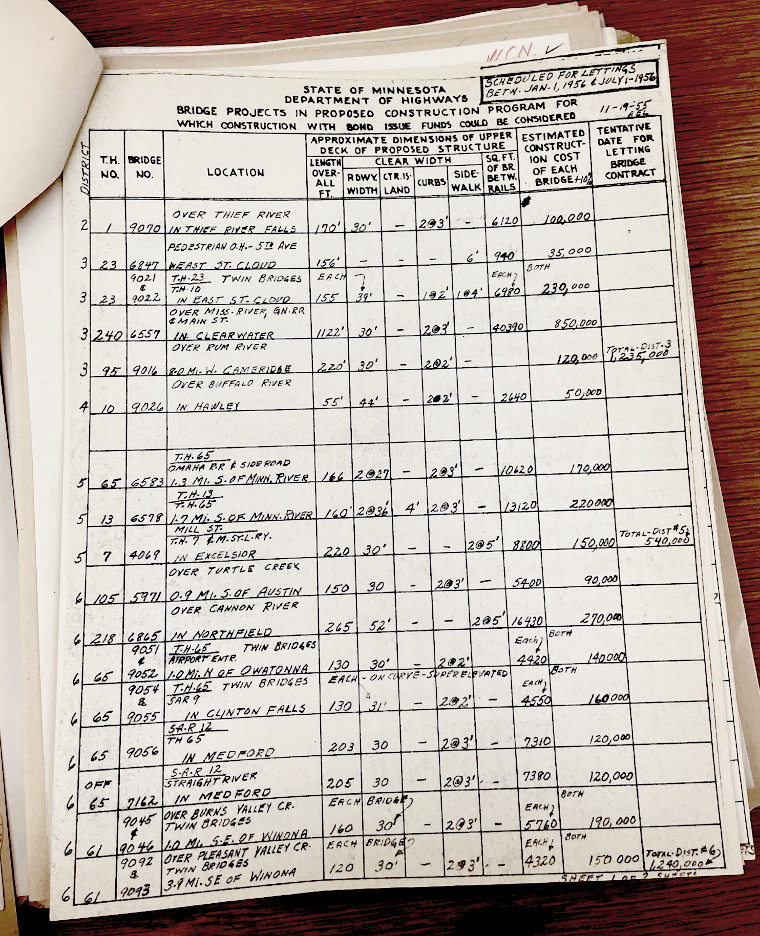 WCN. ✓
SCHEDULED FOR LETTINGS
BETW. JAN. 1, 1956 & JULY 1-1956
STATE OF MINNESOTA
DEPARTMENT OF HIGHWAYS
BRIDGE PROJECTS IN PROPOSED CONSTRUCTION PROGRAM FOR
WHICH CONSTRUCTION WITH BOND ISSUE FUNDS COULD BE CONSIDERED
11-19-55
DISTRICT
T.H. NO.
BRIDGE NO.
LOCATION
APPROXIMATE DIMENSIONS OF UPPER DECK OF PROPOSED STRUCTURE
LENGTH OVER-ALL FT.
CLEAR WIDTH
RDWY. WIDTH
CTR. IS-LAND
CURBS
SIDE-WALK
SQ. FT. OF BR. BETW. RAILS
ESTIMATED CONSTRUCT-ION COST OF EACH BRIDGE +10%
TENTATIVE DATE FOR LETTING BRIDGE CONTRACT
OVER THIEF RIVER
2 1 9070 IN THIEF RIVER FALLS 170' 30' - 2@3' - 6120 100,000
PEDESTRIAN O.H. - 5TH AVE
3 23 6847 W EAST ST. CLOUD 156' - - - 6' 940 35,000
9021 T.H-23 TWIN BRIDGES EACH EACH BOTH
& T.H-10
3 23 9022 IN EAST ST. CLOUD 155 39' - 1@2' 1@4' 6980 230,000
OVER MISS-RIVER, GN.RR
& MAIN ST.
3 240 6557 IN CLEARWATER 1122' 30' - 2@3' - 40390 850,000
OVER RUM RIVER
3 95 9016 8.0 Mi. W. CAMBRIDGE 220' 30' - 2@2' - 120,000 TOTAL-DIST-3 1,235,000
OVER BUFFALO RIVER
4 10 9026 IN HAWLEY 55' 44' - 2@2' - 2640 50,000
T.H. 65
OMAHA RR & SIDEROAD
5 65 6583 1.3 Mi. S. OF MINN. RIVER 166 2@27 - 2@3' - 10620 170,000
T.H. 13
T.H. 65
5 13 6578 1.7 Mi. S. OF MINN. RIVER 160' 2@36' 4' 2@3' - 13120 220000
MILL ST.
T.H. 7 & M.ST.L.RY.
5 7 4069 IN EXCELSIOR 220 30' - - 2@5' 8800 150,000 TOTAL-DIST #5 540,000
OVER TURTLE CREEK
6 105 5971 0.9 Mi. S. OF AUSTIN 150 30 - 2@3' - 5400 90,000
OVER CANNON RIVER
6 218 6865 IN NORTHFIELD 265 52' - - 2@5' 16430 270,000
9051 T.H-65 TWIN BRIDGES EACH BOTH
& AIRPORT ENTR.
6 65 9052 1.0 Mi. N OF OWATONNA 130 30' - 2@2' 4420 140000
9054 T.H-65 TWIN BRIDGES EACH - ON CURVE - SUPERELEVATED EACH BOTH
& SAR 9
6 65 9055 IN CLINTON FALLS 130 31' - 2@2' - 4550 160000
S.A.R 12
TH 65
6 65 9056 IN MEDFORD 203 30 - 2@3' - 7310 120,000
S.A.R 12
OFF STRAIGHT RIVER
6 65 7162 IN MEDFORD 205 30 - 2@3' - 7380 120,000
OVER BURNS VALLEY CR. EACH BRIDGE EACH BOTH
9045 TWIN BRIDGES
&
6 61 9046 1.0 Mi. S.E. OF WINONA 160 30' - 2@3' - 5760 190,000
9092 OVER PLEASANT VALLEY CR. EACH BRIDGE EACH BOTH
& TWIN BRIDGES
6 61 9093 3.9 Mi. SE OF WINONA 120 30' - 2@3' - 4320 150 000 TOTAL-DIST. #6 1,240,000
SHEET 1 OF 2 SHEETS